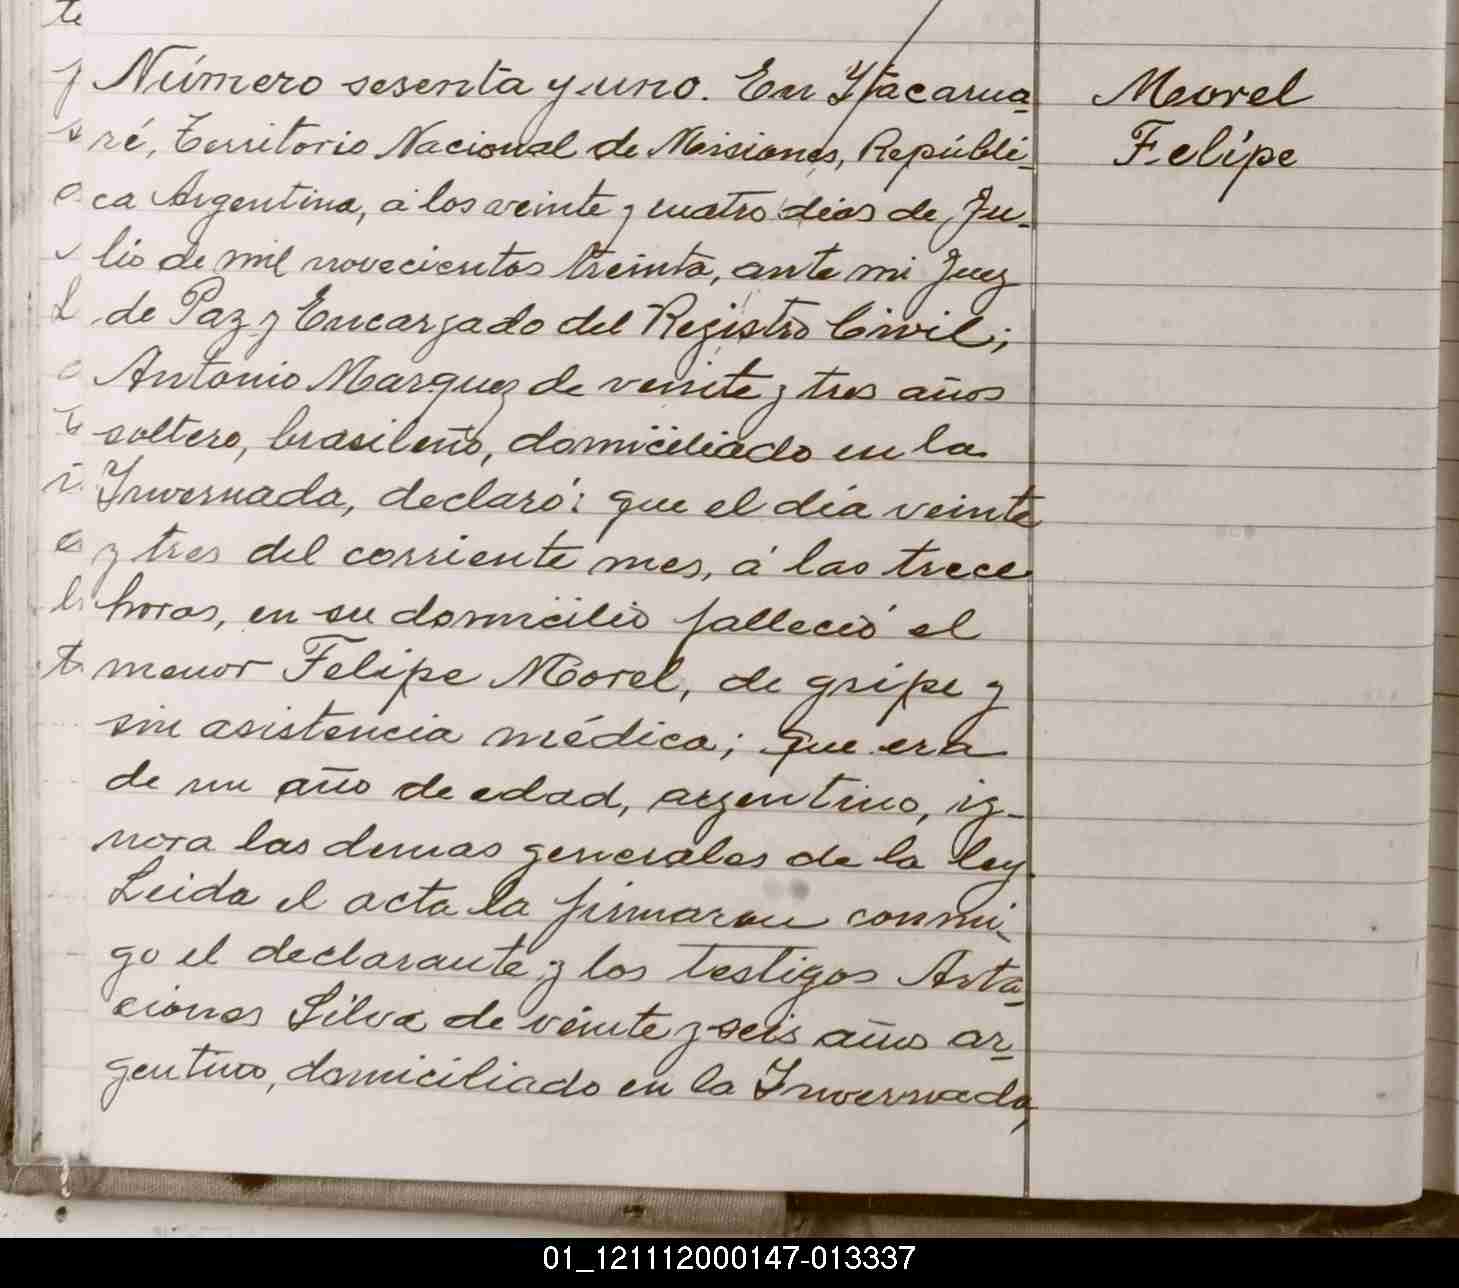 te
Número sesenta y uno. En Ytacarua-
ré, Territorio Nacional de Misiones, Repúbli-
ca Argentina, á los veinte y cuatro dias de Ju-
lio de mil novecientos treinta, ante mi Juez
de Paz y Encargado del Registro Civil;
Antonio Marquez de veinte y tres años
soltero, brasileño, domiciliado en la
Invernada, declaró: que el dia veinte
y tres del corriente mes, á las trece
horas, en su domicilio falleció el
menor Felipe Morel, de gripe y
sin asistencia médica; que era
de un año de edad, argentino, ig-
nora las demas generales de la ley.
Leida el acta la firmaron conmi-
go el declarante y los testigos
ciones Silva de veinte y seis años ar-
gentino, domiciliado en la Invernada,
Morel
Felipe
01_121112000147-013337